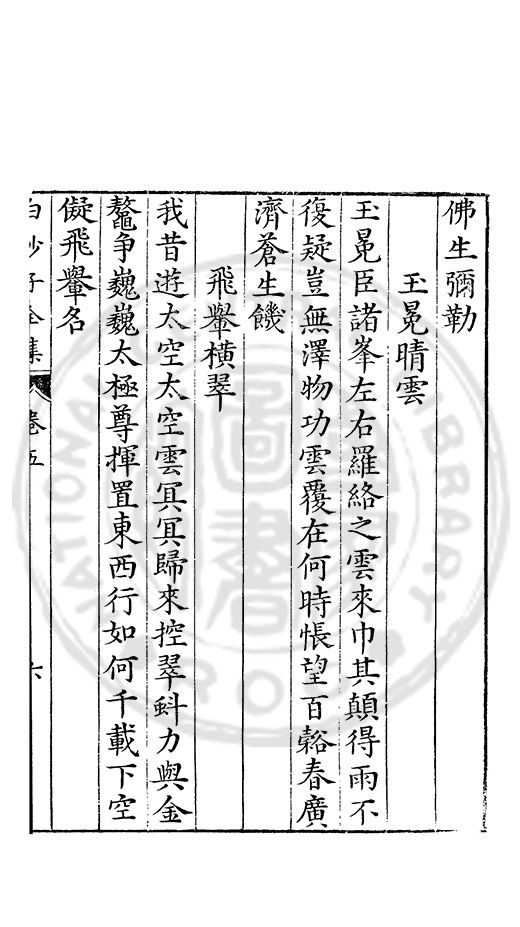 佛生彌勒
玉冕晴雲
玉冕臣諸峯左右羅絡之雲來巾其顛得雨不
復疑豈無澤物功雲覆在何時悵望百穀春廣
濟蒼生饑
飛轝橫翠
我昔遊太空太空雲冥冥歸來控翠蚪力與金
鼇争巍巍太極尊揮置東西行如何千載下空
儗飛轝名
白沙子全集 卷五 六
圖書